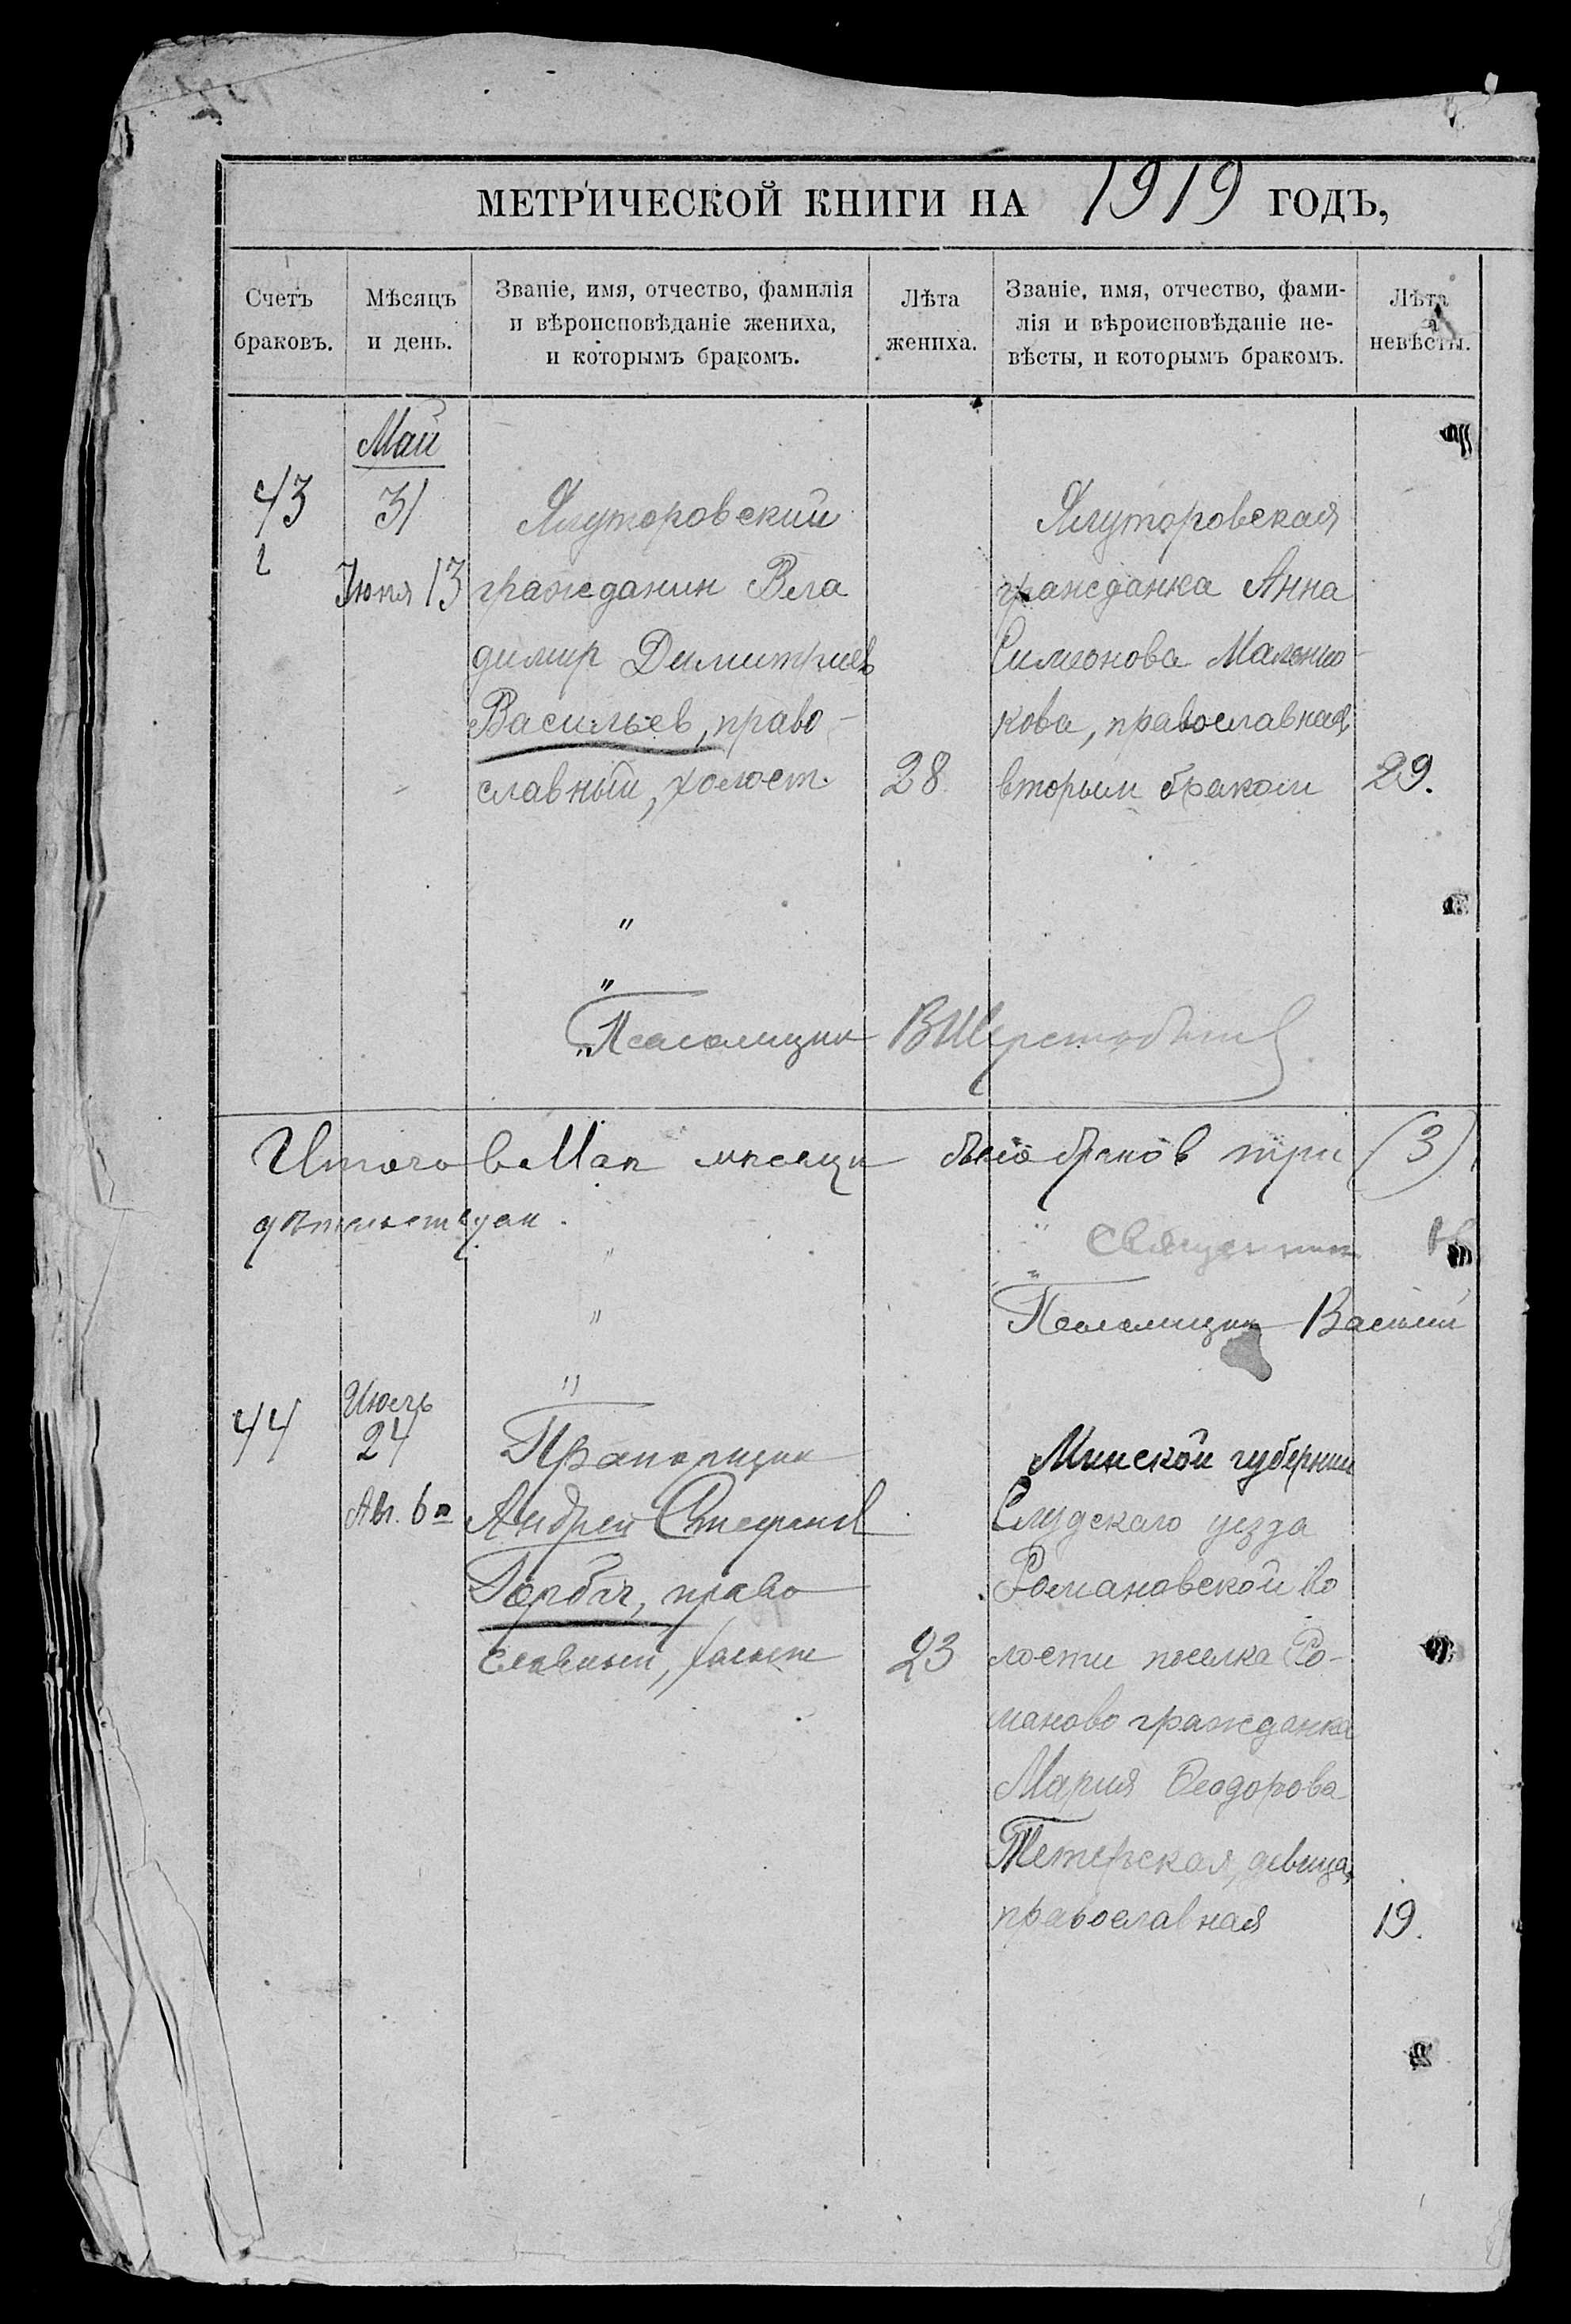 МЕТРИЧЕСКОЙ КНИГИ НА 1919 ГОДЪ,
Счетъ браковъ.
Мѣсяцъ и день.
Званіе, имя, отчество, фамилія
и вѣроисповѣданіе жениха,
и которымъ бракомъ.
Лѣта жениха.
Званіе, имя, отчество, фами-
лія и вѣроисповѣданіе не-
вѣсты, и которымъ бракомъ.
Лѣта невѣсты.
Май
43
31
Июня 13
Ялуторовский
гражданин Вла
димир Димитриев
Васильев, право-
славный, холост.
28
Ялуторовская
гражданка Анна
Симеонова
кова, православная
вторым браком
29.
Псаломщик В Шерстобитов
Итого в Мае месяце было браков три (3)
Священник
Псаломщик Василий
44
Июль
24
Ав. 6
Прапорщик
Андрей Стефанов
Горбач, право
славный, холост
23
Минской губернии
Слудскаго уезда
Романовской во
лости поселка Ро-
маново гражданка
Мария Феодорова
Тетерская, девица,
православная
19.